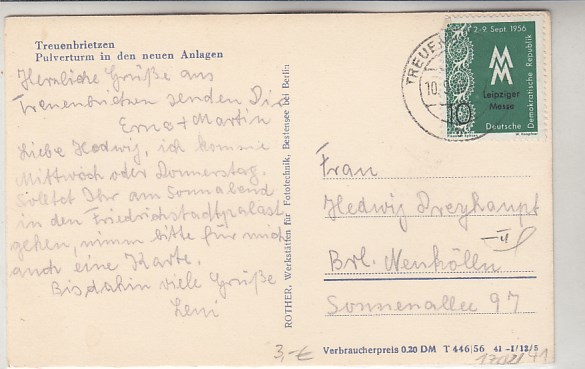 Treuenbrietzen
Pulverturm in den neuen Anlagen
Herzliche Grüße aus
Treuenbrietzen senden Dir
Erna + Martin
Liebe Hedwig, ich komme
Mittwoch oder Donnerstag.
Solltet Ihr am Sonnabend
in den Friedrichstadtpalast
gehen, nimm bitte für mich
auch eine Karte.
Bis dahin viele Grüße
Leni
ROTHER, Werkstätten für Fototechnik, Bestensee bei Berlin
TREUEN
10.
2.-9. Sept. 1956
MM
Leipziger
Messe
10
Deutsche Demokratische Republik
Frau
Hedwig Dreyhaupt
Brl. Neukölln
Sonnenallee 97
3,-€
Verbraucherpreis 0,20 DM T 446/56 41 -1/12/5